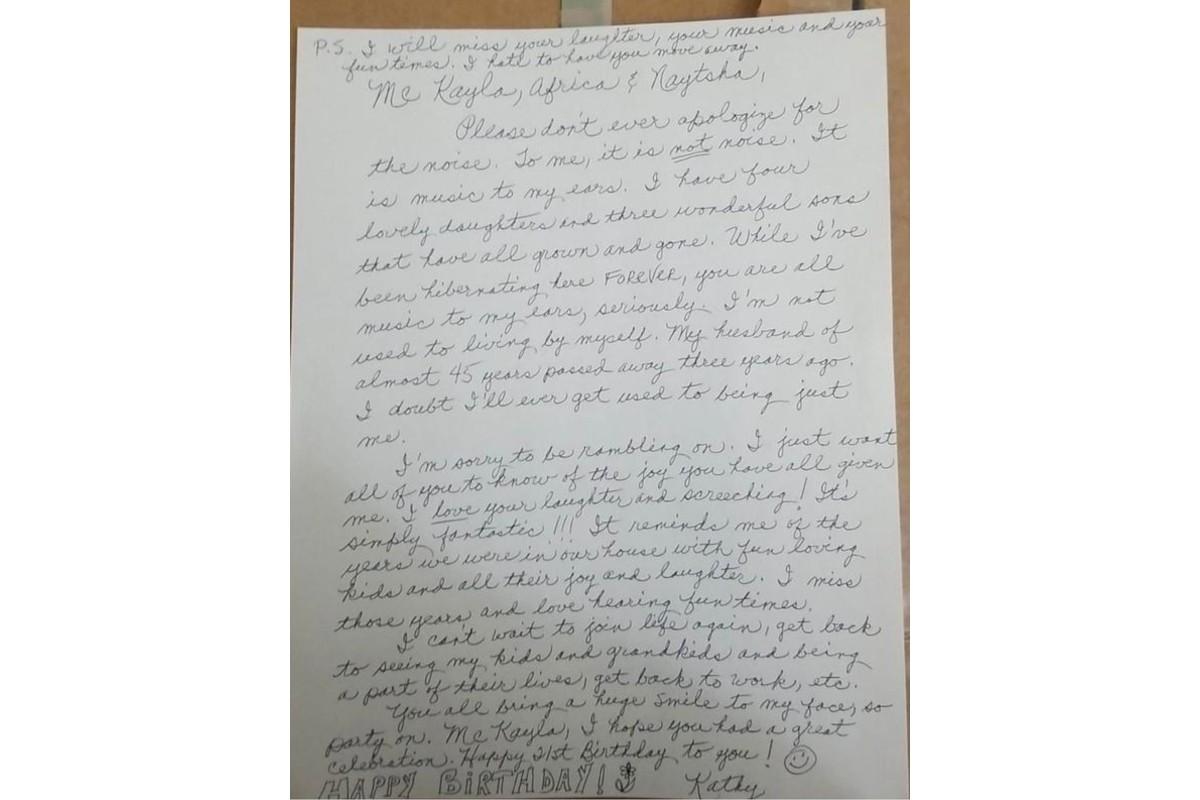 P.S. I will miss your laughter, your music and your
fun times. I hate to have you move away.
Mc Kayla, Africa & Naytsha,
Please don't ever apologize for
the noise. To me, it is not noise. It
is music to my ears. I have four
lovely daughters and three wonderful sons
that have all grown and gone. While I've
been hibernating here FOREVER, you are all
music to my ears, seriously. I'm not
used to living by myself. My husband of
almost 45 years passed away three years ago.
I doubt I'll ever get used to being just
me.
I'm sorry to be rambling on. I just want
all of you to know of the joy you have all given
me. I love your laughter and screeching! It's
simply fantastic!!! It reminds me of the
years we were in our house with fun loving
kids and all their joy and laughter. I miss
those years and love hearing fun times.
I can't wait to join life again, get back
to seeing my kids and grandkids and being
a part of their lives, get back to work, etc.
You all bring a huge smile to my face, so
party on. Mc Kayla, I hope you had a great
celebration. Happy 21st Birthday to you!
HAPPY BiRTHDAY! Kathy